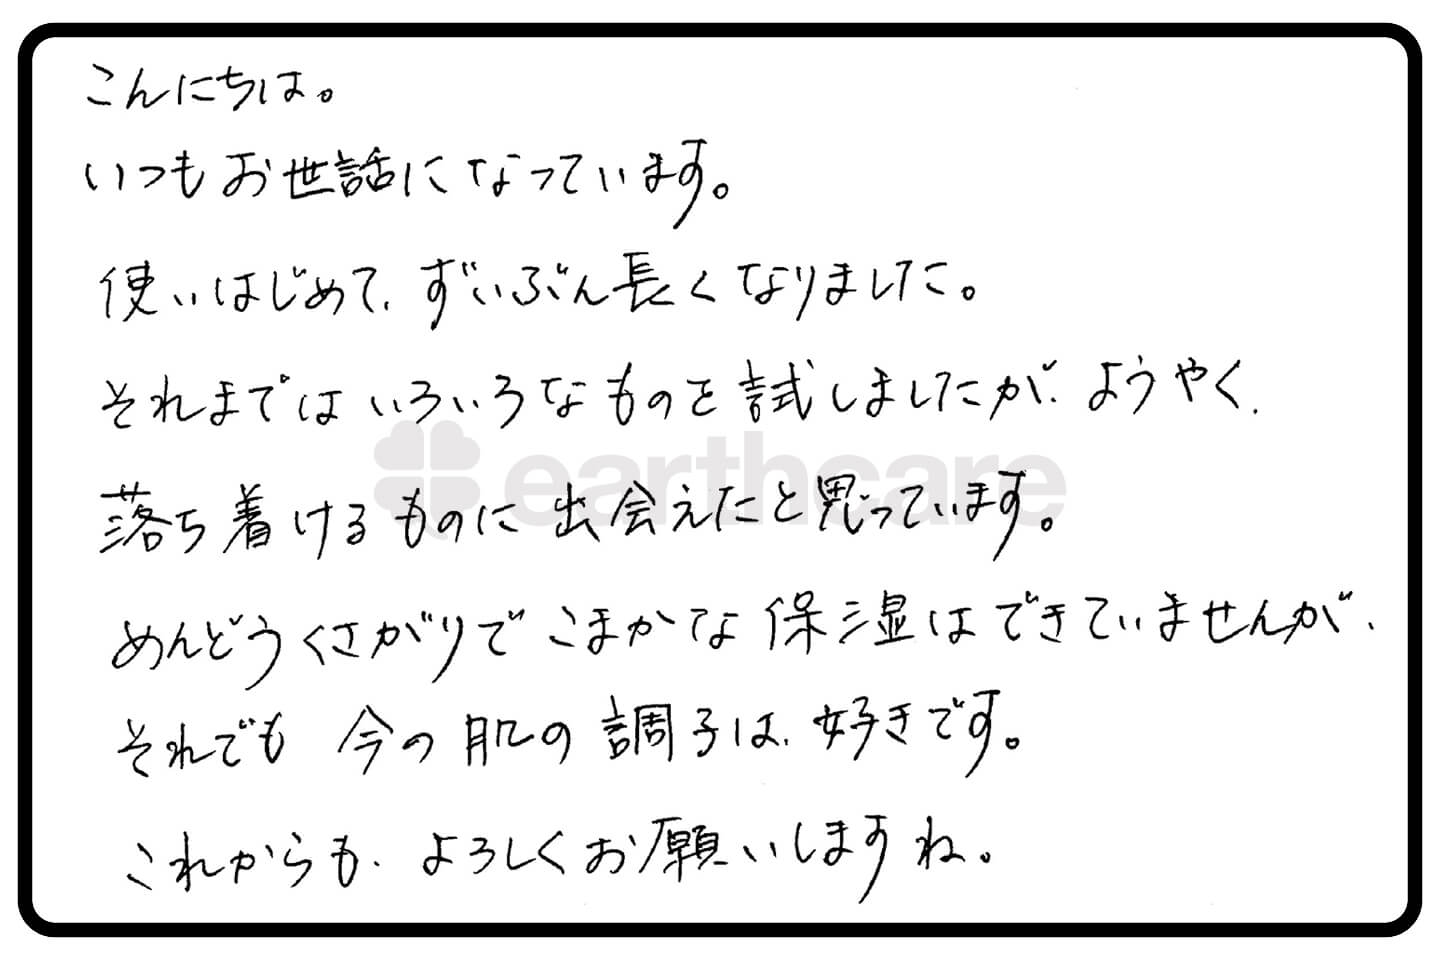 こんにちは。
いつもお世話になっています。
使いはじめて、ずいぶん長くなりました。
それまではいろいろなものを試しましたが、ようやく、
earthcare
落ち着けるものに出会えたと思っています。
めんどうくさがりでこまかな保湿はできていませんが、
それでも今の肌の調子は、好きです。
これからも、よろしくお願いしますね。